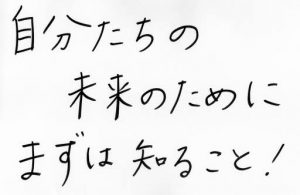 自分たちの
未来のために
まずは知ること!